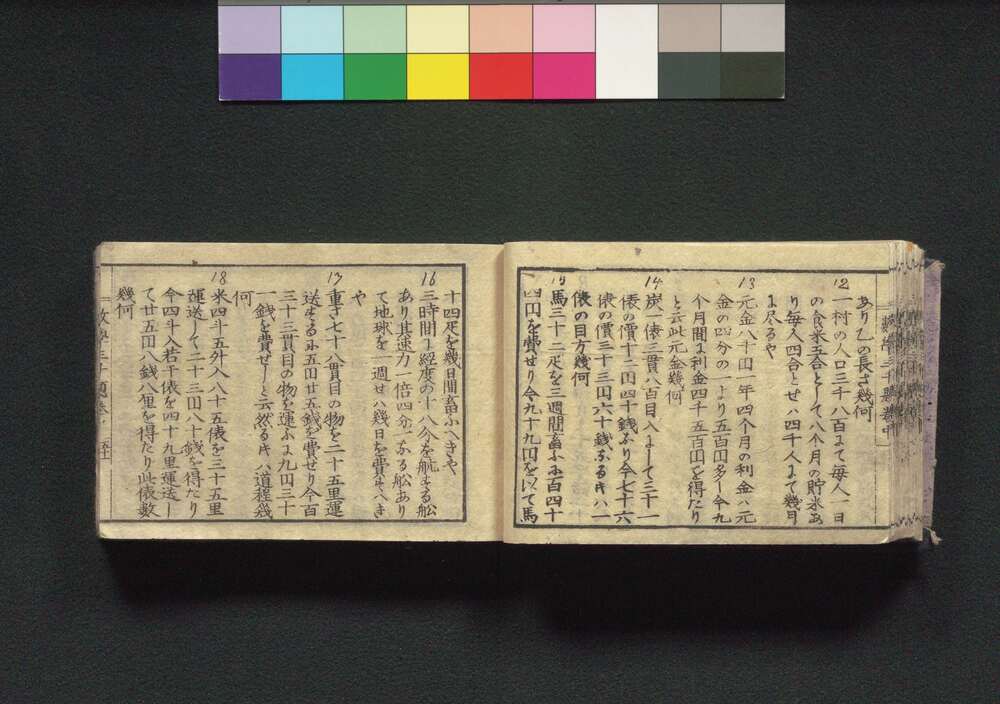 あり乙の長さ幾何
12
一村の人口三千八百まて毎人一日
の食米五合として八个月の貯米あ
り毎人四合とせハ四千人まて幾月
に尽るや
13
元金八十円一年四个月の利金ハ元
金の四分の一より五百円多し今九
个月間に利金四千五百円を得たり
と云此元金幾何
14
炭一俵三貫八百目入にして三十一
俵の價十二円四十銭なり今七十六
俵の價三十三円六十銭なるキハ一
俵の目方幾何
15
馬三十二疋を三週間畜ふに百四十
四円を費せり今九十九円を以て馬
十四疋を幾日間畜ふへきや
16
三時間に経度の十八分を航する舩
あり其速力一倍四分一なる舩あり
て地球を一週せハ幾日を費すへき
や
17
重さ七十八貫目の物を二十五里運
送するに五円廿五銭を費せり今百
三十三貫目の物を運ふに九円三十
一銭を費せしと云然るキハ道程幾
何
18
米四斗五升入八十五俵を三十五里
運送して二十三円八十銭を得たり
今四斗入若干俵を四十九里運送し
て廿五円八銭八厘を得たり此俵数
幾何
数學三千題巻